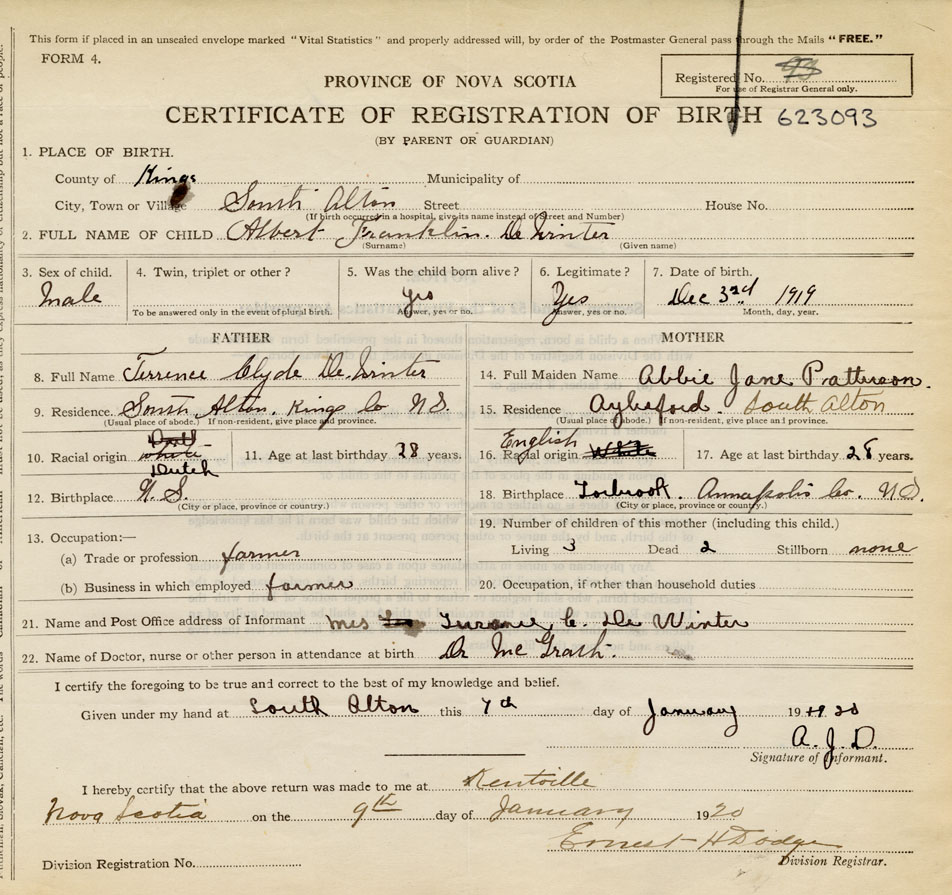 This form if placed in an unsealed envelope marked "Vital Statistics" and properly addressed will, by order of the Postmaster General pass through the Mails "FREE."
FORM 4.
PROVINCE OF NOVA SCOTIA
Registered No. 93
For use of Registrar General only.
CERTIFICATE OF REGISTRATION OF BIRTH 623093
(BY PARENT OR GUARDIAN)
1. PLACE OF BIRTH.
County of Kings Municipality of
City, Town or Village South Alton Street House No.
(If birth occurred in a hospital, give its name instead of Street and Number)
2. FULL NAME OF CHILD Albert Franklin. De Winter
(Surname) (Given name)
3. Sex of child. 4. Twin, triplet or other? 5. Was the child born alive? 6. Legitimate? 7. Date of birth.
Male Yes Yes Dec 3rd 1919
To be answered only in the event of plural birth. Answer, yes or no. Answer, yes or no. Month, day, year.
FATHER MOTHER
8. Full Name Terrence Clyde De Winter
9. Residence. South Alton. Kings Co N.S.
(Usual place of abode.) If non-resident, give place and province.
10. Racial origin white Dutch 11. Age at last birthday 38 years.
12. Birthplace N.S.
(City or place, province or country.)
13. Occupation:—
(a) Trade or profession farmer
(b) Business in which employed farmer
14. Full Maiden Name Abbie Jane Patterson.
15. Residence Aylesford. South Alton
(Usual place of abode.) If non-resident, give place and province.
English
16. Racial origin White 17. Age at last birthday 28 years.
18. Birthplace Torbrook. Annapolis Co. N.S.
(City or place, province or country.)
19. Number of children of this mother (including this child.)
Living 3 Dead 2 Stillborn none
20. Occupation, if other than household duties
21. Name and Post Office address of Informant Mrs Terrance C. De Winter
22. Name of Doctor, nurse or other person in attendance at birth Dr McGrath.
I certify the foregoing to be true and correct to the best of my knowledge and belief.
Given under my hand at South Alton this 7th day of January 1920
A. J. D.
Signature of Informant.
I hereby certify that the above return was made to me at Kentville
Nova Scotia on the 9th day of January 1920
Ernest H Dodge
Division Registration No. Division Registrar.